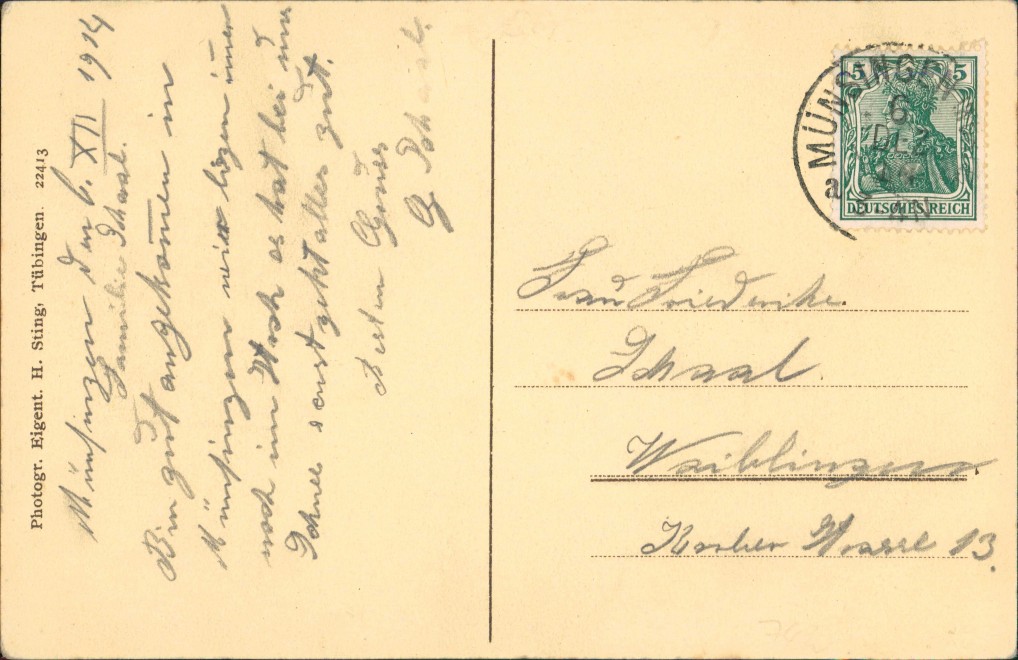 Münsingen den 6. XII 1914
Familie Schaal.
Bin gut angekommen in
Münsingen wir liegen immer
noch im Ort es hat bei uns
Schnee sonst geht alles gut.
Besten Gruß
G Schaal.
Photogr. Eigent. H. Sting, Tübingen. 22413
5 5
DEUTSCHES REICH
MÜNSINGEN
6
a
Frau Friederike
Schaal.
Waiblingen.
Korber Strasse 13.